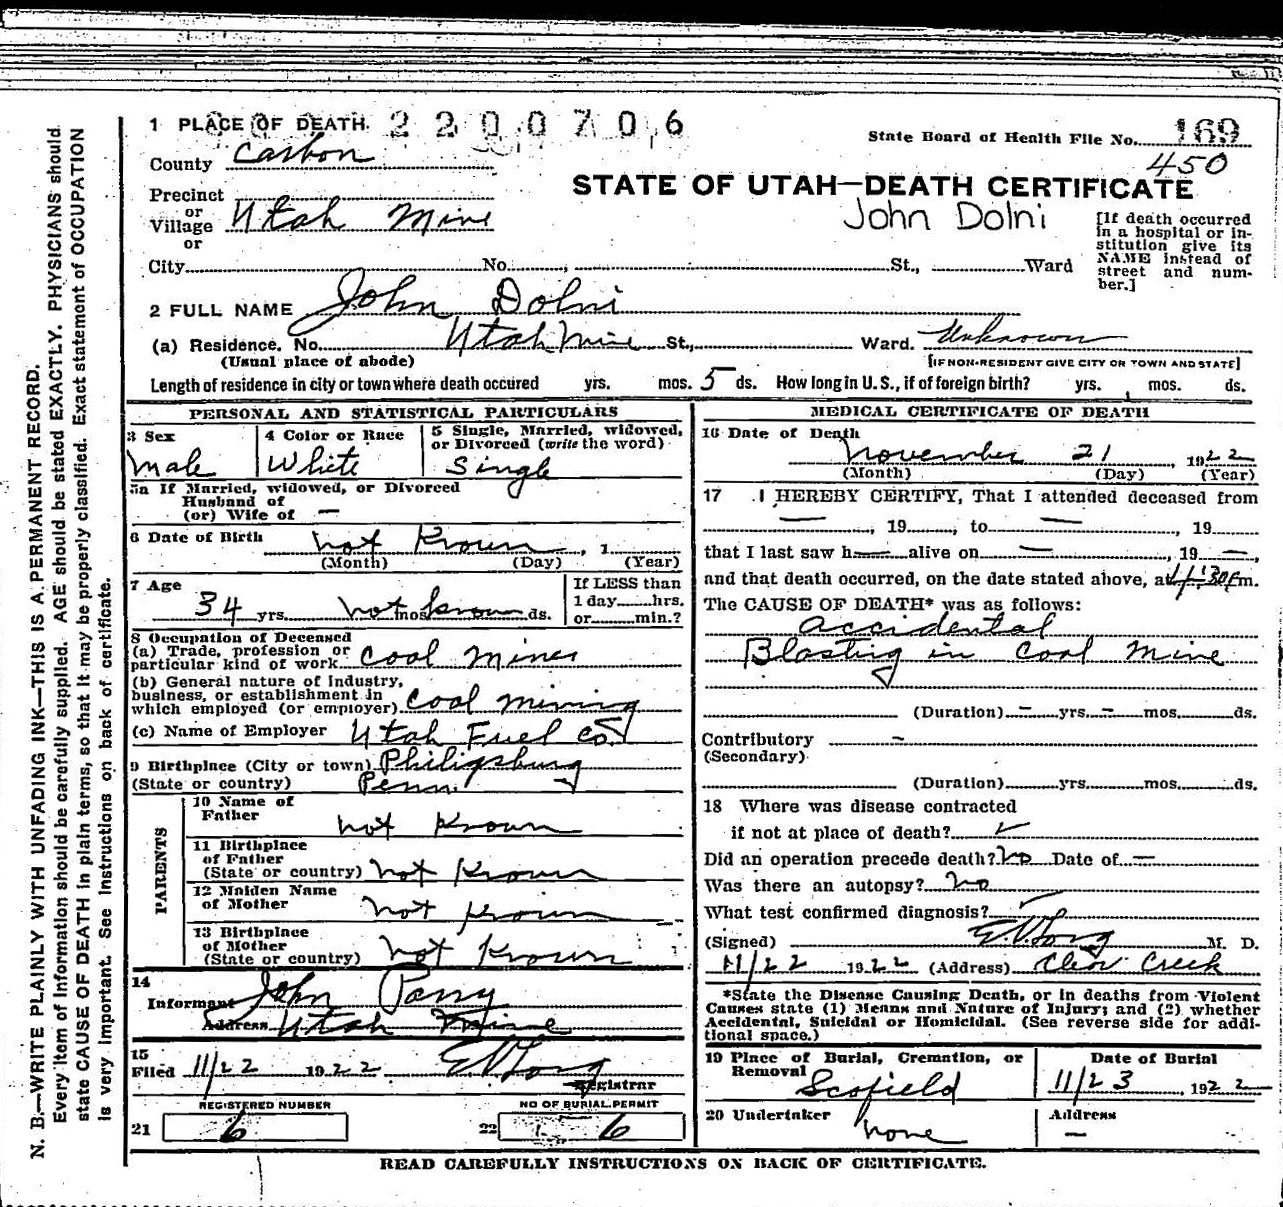 1 PLACE OF DEATH. 2200706
State Board of Health File No. 169
450
County Carbon
STATE OF UTAH—DEATH CERTIFICATE
Precinct
or
Village Utah Mine
or
John Dolni
[If death occurred
in a hospital or in-
stitution give its
NAME instead of
street and num-
ber.]
City No. , St., Ward
2 FULL NAME John Dolni
(a) Residence. No. Utah Mine St., Ward. Unknown
(Usual place of abode) [IF NON-RESIDENT GIVE CITY OR TOWN AND STATE]
Length of residence in city or town where death occured yrs. mos. 5 ds. How long in U. S., if of foreign birth? yrs. mos. ds.
PERSONAL AND STATISTICAL PARTICULARS
3 Sex
Male
4 Color or Race
White
5 Single, Married, widowed,
or Divorced (write the word)
Single
5a If Married, widowed, or Divorced
Husband of
(or) Wife of —
6 Date of Birth not Known , 1
(Month) (Day) (Year)
7 Age
34 yrs. not mos. known ds.
If LESS than
1 day hrs.
or min.?
8 Occupation of Deceased
(a) Trade, profession or
particular kind of work Coal Miner
(b) General nature of Industry,
business, or establishment in
which employed (or employer) Coal mining
(c) Name of Employer Utah Fuel Co.
9 Birthplace (City or town) Philigsburg
(State or country) Penn.
PARENTS
10 Name of
Father not Known
11 Birthplace
of Father
(State or country) not Known
12 Maiden Name
of Mother not Known
13 Birthplace
of Mother
(State or country) not Known
14
Informant John Parry
Address Utah Mine
15
Filed 11/22 1922 E V Long
Registrar
REGISTERED NUMBER
21 6
NO OF BURIAL PERMIT
22 6
MEDICAL CERTIFICATE OF DEATH
16 Date of Death
November 21 , 1922
(Month) (Day) (Year)
17 I HEREBY CERTIFY, That I attended deceased from
— , 19 , to — , 19
that I last saw h— alive on — , 19 —,
and that death occurred, on the date stated above, at 11:30 P m.
The CAUSE OF DEATH* was as follows:
Accidental
Blasting in Coal Mine
(Duration) — yrs. — mos. ds.
Contributory —
(Secondary)
(Duration) yrs. mos. ds.
18 Where was disease contracted
if not at place of death? ✓
Did an operation precede death? No Date of —
Was there an autopsy? No
What test confirmed diagnosis? ✓
(Signed) E. V. Long M. D.
11/22 1922 (Address) Clear Creek
*State the Disease Causing Death, or in deaths from Violent
Causes state (1) Means and Nature of Injury; and (2) whether
Accidental, Suicidal or Homicidal. (See reverse side for addi-
tional space.)
19 Place of Burial, Cremation, or
Removal Scofield
Date of Burial
11/23 1922
20 Undertaker
none
Address
—
READ CAREFULLY INSTRUCTIONS ON BACK OF CERTIFICATE.
N. B.—WRITE PLAINLY WITH UNFADING INK—THIS IS A PERMANENT RECORD.
Every item of information should be carefully supplied. AGE should be stated EXACTLY. PHYSICIANS should
state CAUSE OF DEATH in plain terms, so that it may be properly classified. Exact statement of OCCUPATION
is very important. See instructions on back of certificate.